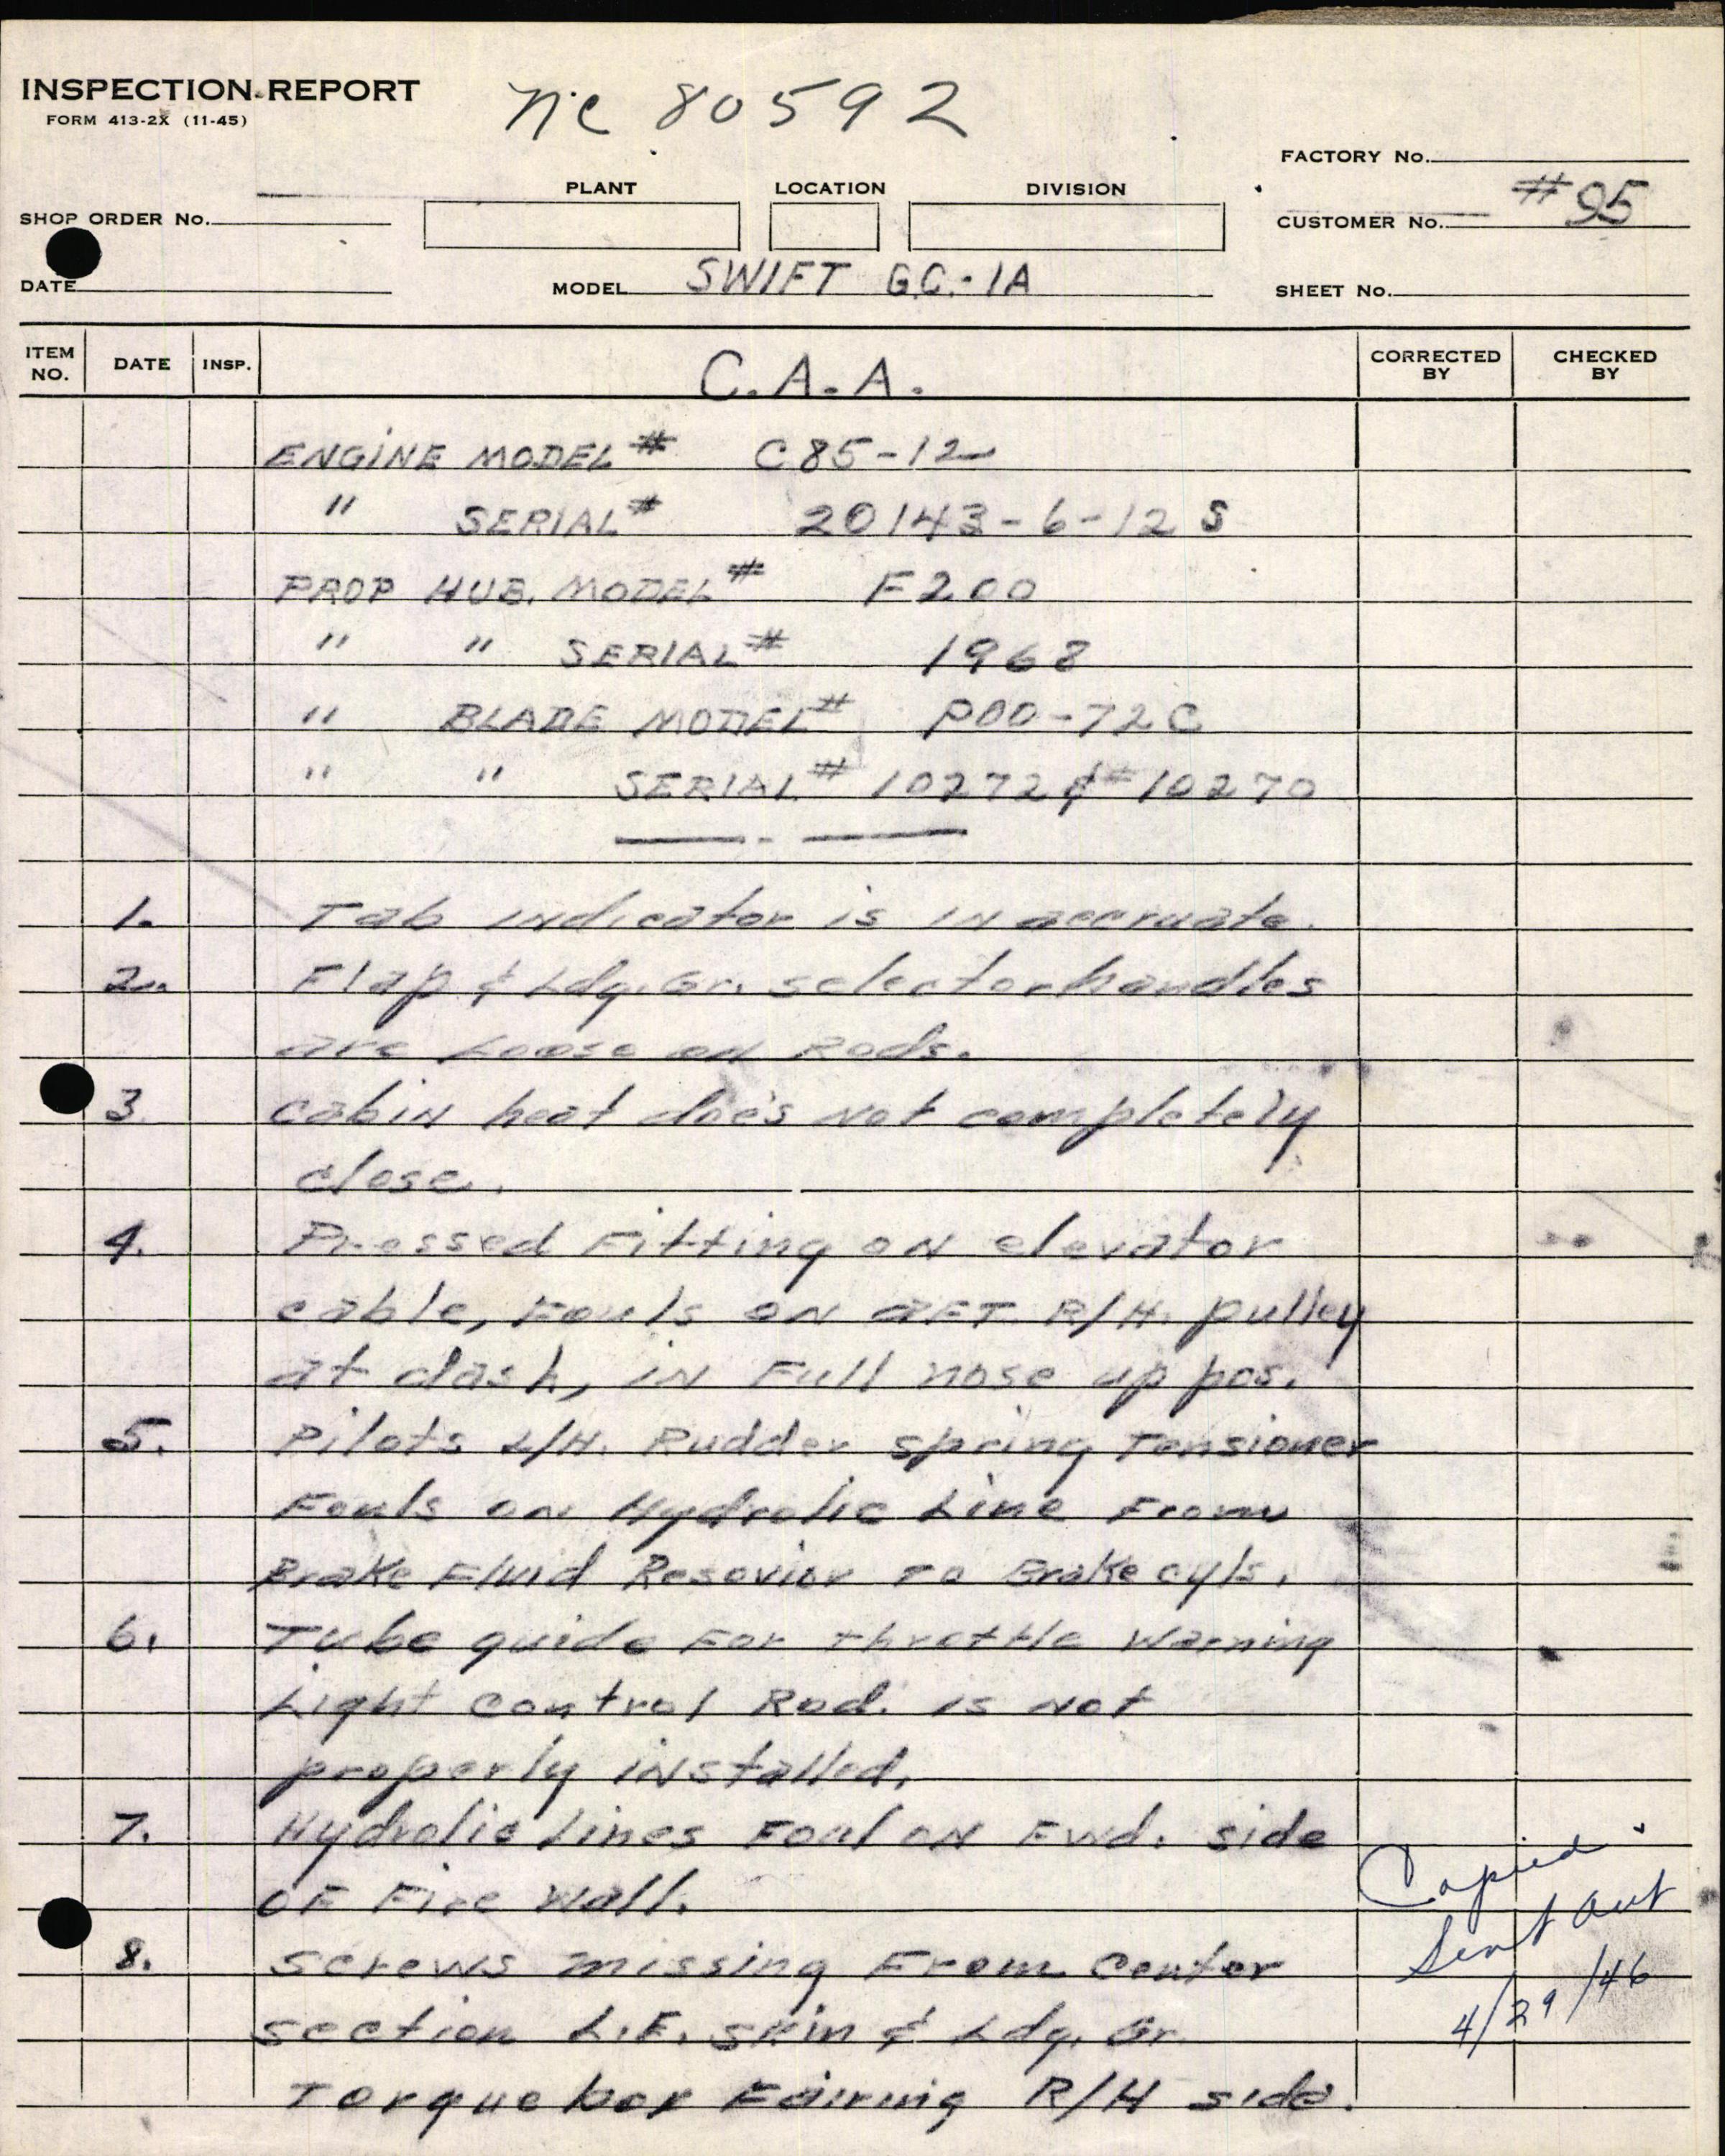 INSPECTION REPORT
FORM 413-2X (11-45)
nc 80592
FACTORY No.
PLANT
LOCATION
DIVISION
SHOP ORDER No.
CUSTOMER No. #95
DATE
MODEL SWIFT G.C.-1A
SHEET No.
ITEM NO.
DATE
INSP.
C.A.A.
CORRECTED BY
CHECKED BY
ENGINE MODEL # C85-12
" SERIAL # 20143-6-12 S
PROP HUB. MODEL # F200
" " SERIAL # 1968
" BLADE MODEL # P00-72C
" " SERIAL # 10272 & # 10270
1. Tab indicator is in accruate.
2. Flap & Ldg. Gr. selector handles
are Loose on Rods.
3 Cabin heat doe's not completely
close.
4. Pressed Fitting on elevator
cable, Fouls on aFT R/H. pulley
at dash, in Full nose up pos.
5. Pilots L/H. Rudder spring Tensioner
Fouls on Hydrolic Line From
Brake Fluid Resovior To Brake cyls.
6. Tube guide For Throttle Warning
Light Control Rod. is not
properly installed.
7. Hydrolic Lines Foul on Fwd. side
OF Fire Wall.
8. Screws missing From Center
section L.E. skin & Ldg. Gr.
Torque box Fairing R/H side.
Copied
Sent out
4/29/46